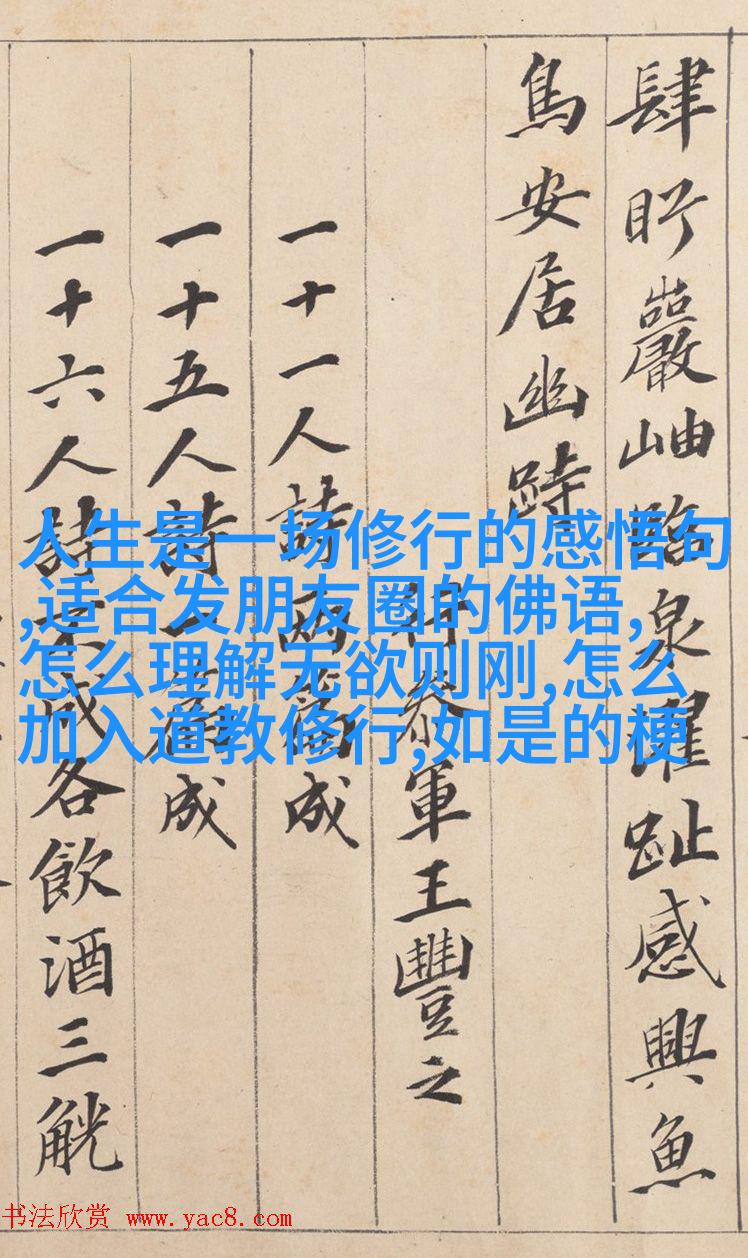 肆眄巖岫臨泉濯趾感興魚
鳥安居幽跱
行參軍王豐之
一十一人詩兩篇成
一十五人詩一篇成
一十六人詩不成各飲酒三觥
人生是一场修行的感悟句
,适合发朋友圈的佛语,
怎么理解无欲则刚,怎么
加入道教修行,如是的梗
书法欣赏 www.yac8.com